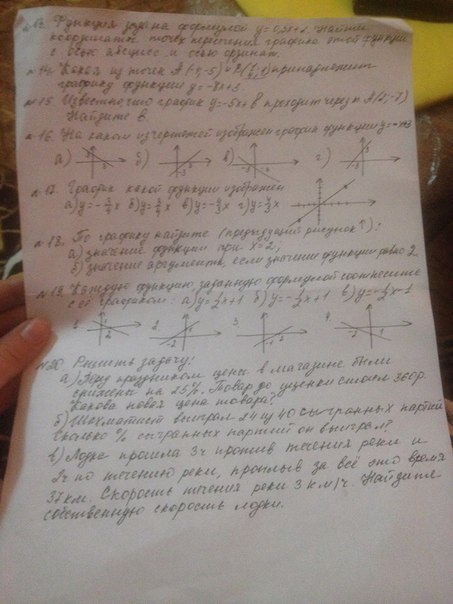 Функция задана формулой y=
координаты точек пересечения графика этой функции
с осью абсцисс и осью ординат.
№14. Какая из точек принадлежит
графику функции y=-8x+3.
№15. Известно что график y=-5x+b проходит через т A(2;-7)
Найдите b.
№16. На каком из чертежей изображен график функции y=-x+3
а) б) в) г)
3 3 -3 -3 3 3 -3
№17. График какой функции изображен
а) y=- x б) y= x в) y=- x г) y= x
№18. По графику найдите (предыдущий рисунок ↑):
а) значение функции при x=2;
б) значение аргумента, если значение функции равно 2
№19. Каждую функцию, заданную формулой соотнесите
с её графиком: а) y=½x+1 б) y=-½x+1 в) y=-½x-1
1. 2. 3. 4.
2 -2 2 -2
№20 Решить задачу:
а) Перед праздником цены в магазине были
снижены на 25%. Товар до уценки стоил 360р.
Какова новая цена товара?
б) Шахматист выиграл 24 из 40 сыгранных партий
Сколько % сыгранных партий он выиграл?
в) Лодка прошла 3ч против течения реки и
2ч по течению реки, проплыв за всё это время
37 км. Скорость течения реки 3 км/ч. Найдите
собственную скорость лодки.